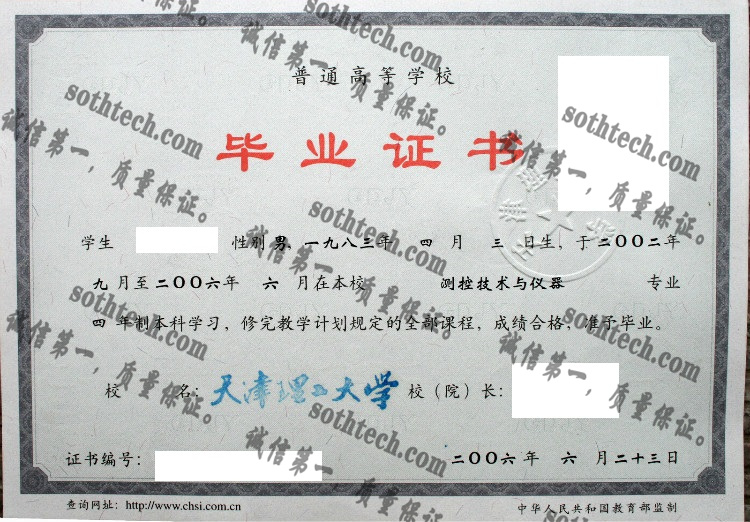 普通高等学校
毕业证书
学生 性别 男, 一九八三年 四 月 三 日生, 于二〇〇二年
九 月至二〇〇六年 六 月在本校 测控技术与仪器 专业
四 年制本科学习, 修完教学计划规定的全部课程, 成绩合格, 准予毕业。
校 名: 天津理工大学 校(院)长:
证书编号: 二〇〇六年 六 月二十三日
查询网址: http://www.chsi.com.cn 中华人民共和国教育部监制
sothtech.com
诚信第一,质量保证。
sothtech.com
诚信第一,质量保证。
sothtech.com
诚信第一,质量保证。
sothtech.com
诚信第一,质量保证。
sothtech.com
诚信第一,质量保证。
sothtech.com
诚信第一,质量保证。
sothtech.com
诚信第一,质量保证。